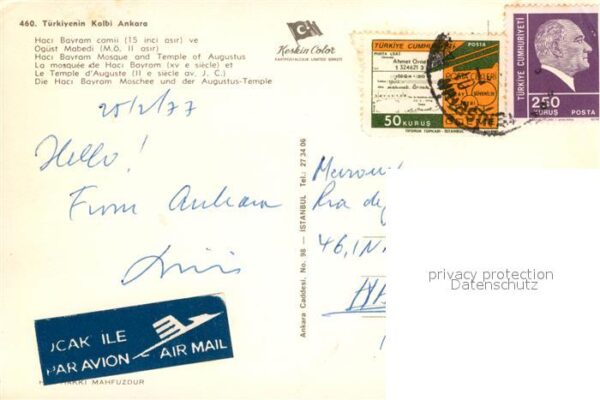 460. Türkiyenin Kalbi Ankara
Hacı Bayram camii (15 inci asır) ve
Ogüst Mabedi (M.Ö. II asır)
Hacı Bayram Mosque and Temple of Augustus
La mosquée de Hacı Bayram (xv e siècle) et
Le Temple d'Auguste (II e siècle av. J. C.)
Die Hacı Bayram Moschee und der Augustus-Temple
Keskin Color
KARTPOSTALCILIK LİMİTED ŞİRKETİ
TÜRKİYE CUMHURİYETİ POSTA
50 KURUŞ
TÜRKİYE CUMHURİYETİ
POSTA
250
KURUŞ
Hello!
From Ankara
46, IN
Ankara Caddesi. No. 98 — İSTANBUL Tel.: 27 34 06
UÇAK İLE
PAR AVION AIR MAIL
HAKKI MAHFUZDUR
privacy protection
Datenschutz